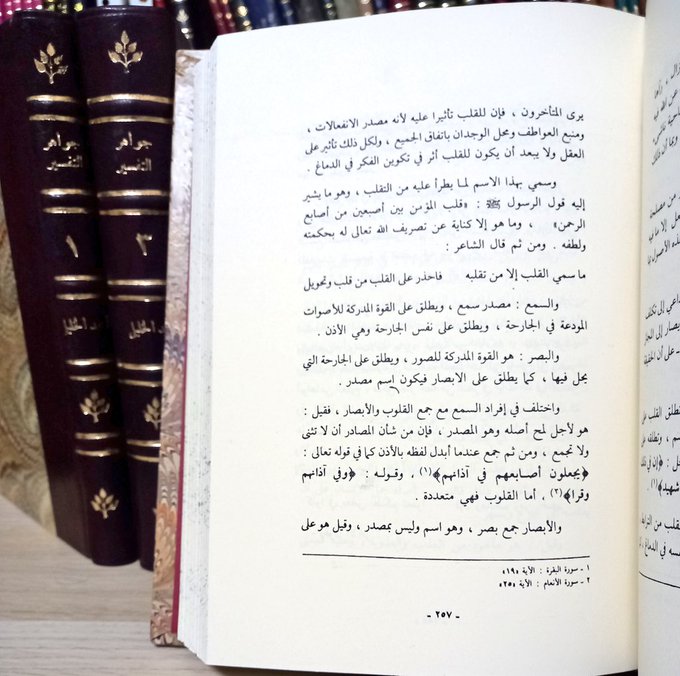 يرى المتأخرون ، فإن للقلب تأثيرا عليه لأنه مصدر الانفعالات ،
ومنبع العواطف ومحل الوجدان باتفاق الجميع ، ولكل ذلك تأثير على
العقل ولا يبعد أن يكون للقلب أثر في تكوين الفكر في الدماغ .
وسمي بهذا الاسم لما يطرأ عليه من التقلب ، وهو ما يشير
إليه قول الرسول ﷺ : «قلب المؤمن بين أصبعين من أصابع
الرحمن» ، وما هو إلا كناية عن تصريف الله تعالى له بحكمته
ولطفه . ومن ثم قال الشاعر :
ما سمي القلب إلا من تقلبه فاحذر على القلب من قلب وتحويل
والسمع : مصدر سمع ، ويطلق على القوة المدركة للأصوات
المودعة في الجارحة ، ويطلق على نفس الجارحة وهي الأذن .
والبصر : هو القوة المدركة للصور ، ويطلق على الجارحة التي
يحل فيها ، كما يطلق على الابصار فيكون اسم مصدر .
واختلف في إفراد السمع مع جمع القلوب والأبصار ، فقيل :
هو لأجل لمح أصله وهو المصدر ، فإن من شأن المصادر أن لا تثنى
ولا تجمع ، ومن ثم جمع عندما أبدل لفظه بالأذن كما في قوله تعالى :
﴿يجعلون أصابعهم في آذانهم﴾(١) ، وقوله : ﴿وفي آذانهم
وقرا﴾(٢) ، أما القلوب فهي متعددة .
والأبصار جمع بصر ، وهو اسم وليس بمصدر ، وقيل هو على
١ ـ سورة البقرة : الآية «١٩»
٢ ـ سورة الأنعام : الآية «٢٥»
- ٢٥٧ -
جواهر
التفسير
١
جواهر
التفسير
٣